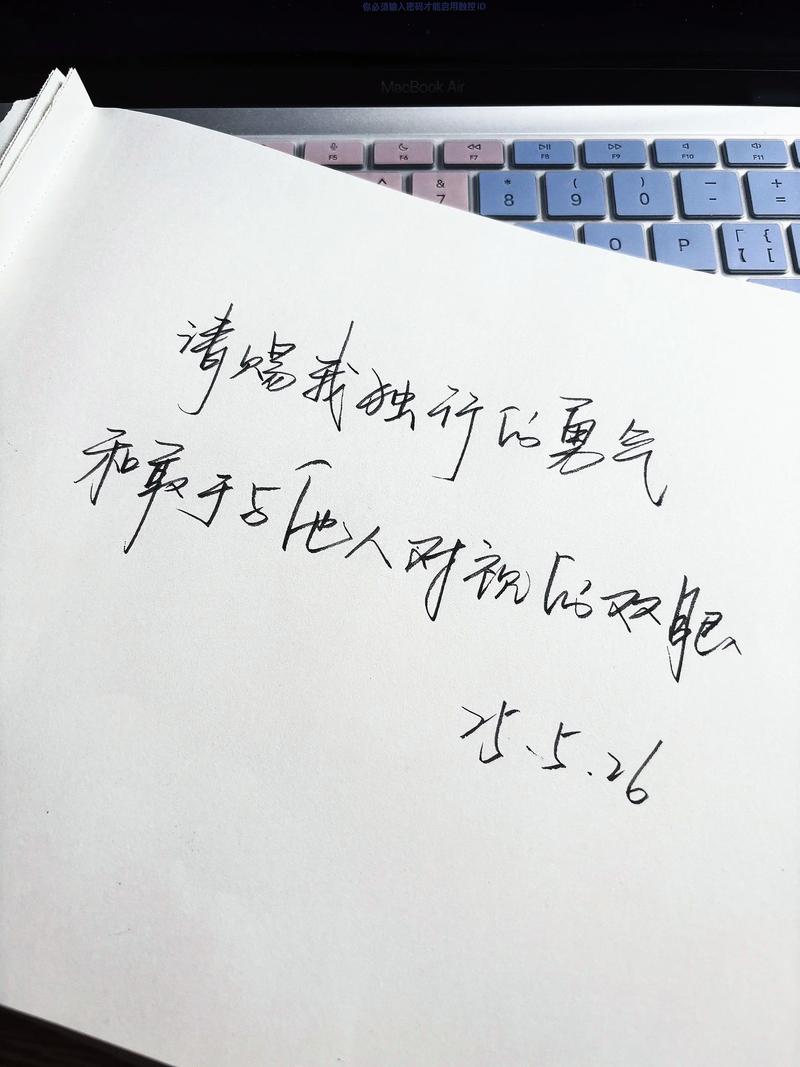 你必须输入密码才能启用触控ID
MacBook Air
F5 F6 F7 F8 F9 F10 F11
^ & 7 * 8 ( 9 ) 0 — - + =
O P 「 { 【 [
请赐我独行的勇气
和敢于与他人对视的双眼
25.5.26